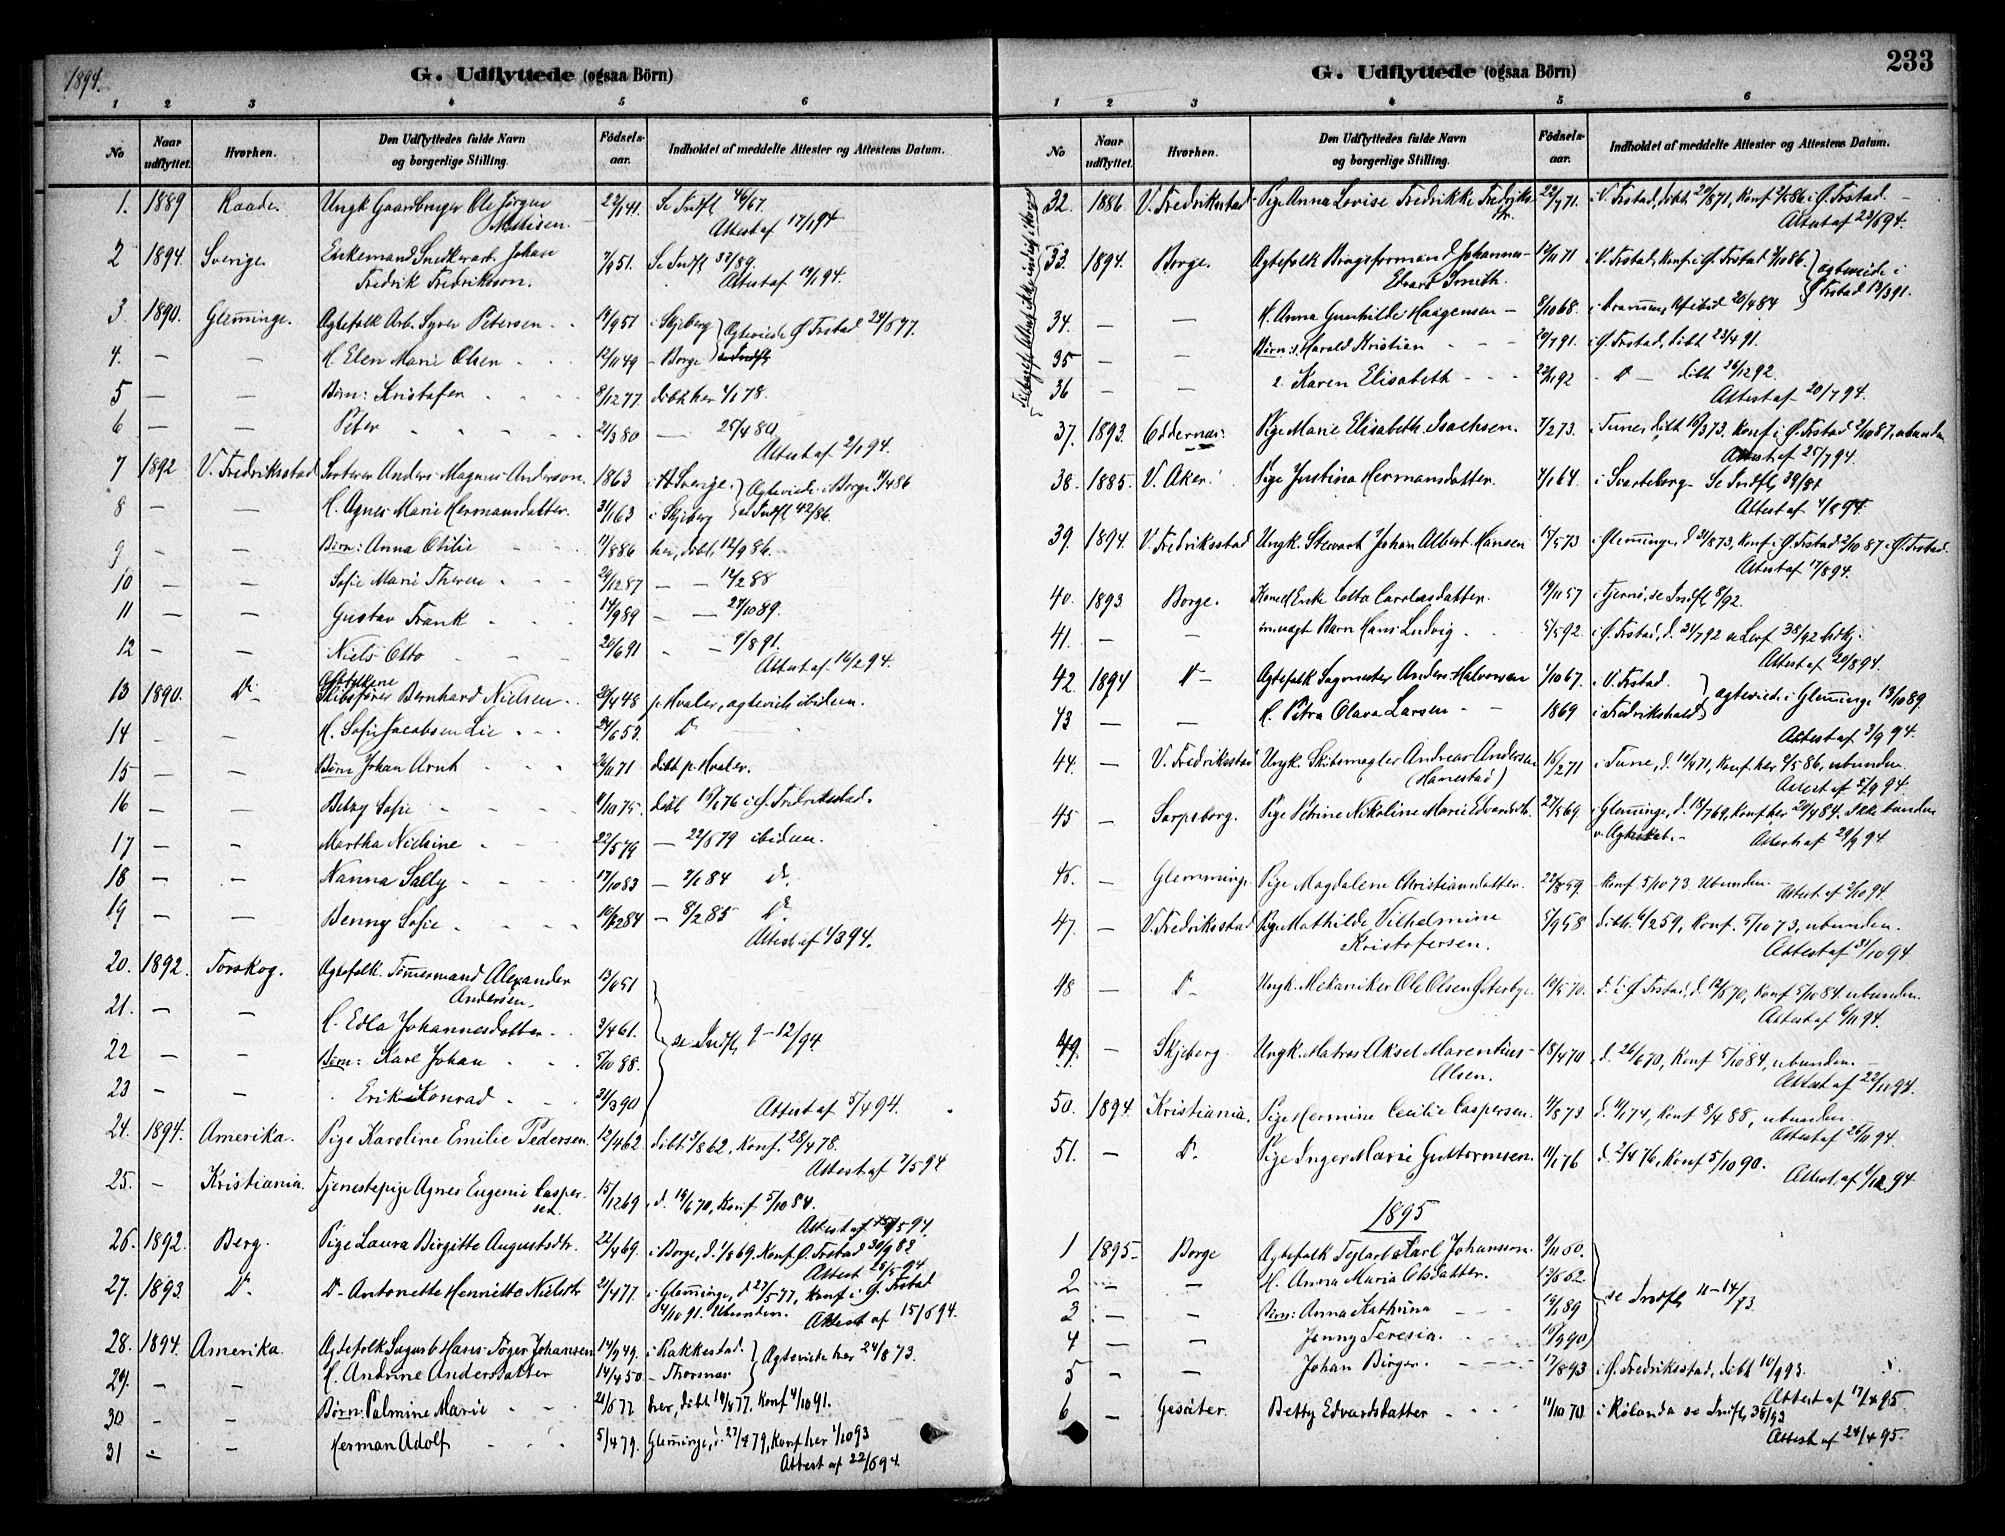 1894.
G. Udflyttede (ogsaa Börn)
1 2 3 4 5 6
No Naar udflyttet. Hvorhen. Den Udflyttedes fulde Navn og borgerlige Stilling. Födsels-aar. Indholdet af meddelte Attester og Attestens Datum.
1. 1889 Raade. Ungk Gaardbruger Ole Jörgen Mathisen. 22/1 41. Se Indfl 46/67.
Attest af 17/1 94
2 1894. Sverige. Enkemand Snedkerarb. Johan Fredrik Fredriksson. 7/9 51. Se Indfl 32/89.
Attest af 19/1 94.
3 1890. Glem̄inge. Agtefolk Arb. Syver Petersen 19/9 51 i Skjeberg Agteviede Ø. Frstad 24/5 77.
4. — — H. Elen Marie Olsen 12/11 49 - Borge
5 — — Börn: Kristofer 8/12 77 döbt her 4/1 78.
6 — — Peter 21/3 80 — 25/4 80.
Attest af 2/1 94.
7 1892 V. Fredriksstad Sorterer Anders Magnus Anderson. 1863 i Sverige. Agteviede i Borge 4/4 86
8 — — H. Agnes Marie Hermansdatter. 31/1 63 i Skjeberg se Indfl 42/86.
9 — — Börn: Anna Otilie 11/8 86 her, döbt 12/9 86.
10 — — Sofie Marie Therese 29/12 87 — — 12/2 88
11 — — Gustav Frank 14/9 89 — — 27/10 89.
12 — — Niels Otto 20/6 91 - — 9/8 91.
Attest af 16/2 94.
13 1890. Do Agtefolkene Skibsförer Bernhard Nielsen 20/4 48 p. Hvaler, agteviede ibidem.
14 — — H. Sofie Jacobsen Lie 24/6 52. Do
15 — — Börn Johan Arnt 2/11 71 döbt p. Hvaler.
16 — — Betzy Sofie 4/10 75. döbt 16/1 76 i Ø. Fredriksstad.
17 — — Martha Nielsine 22/5 79 — 22/6 79 ibidem.
18 — — Nanna Sally 17/10 83 — 2/1 84 do.
19 — — Benny Sofie 10/12 84 — 8/2 85 Do
Attest af 1/3 94.
20. 1892. Torskog. Agtefolk. Töm̄ermand Alexander Andersen. 13/6 51
21. — — H. Edla Johannesdatter 2/4 61. se Indfl 9-12/94
22 — — Börn: Karl Johan 5/10 88.
23 — — Erik Konrad 21/3 90
Attest af 5/4 94.
24. 1894. Amerika. Pige Karoline Emilie Pedersen. 12/4 62. döbt 3/8 62, Konf. 28/4 78.
Attest af 7/5 94
25. - Kristiania. Tjenestepige Agnes Eugenie Caspersen. 15/12 69 d. 19/6 70, Konf 5/10 84.
Attest af 5 94.
26. 1892. Berg. Pige Laura Birgitte Augustsdtr. 22/4 69. i Borge, d. 1/8 69. Konf. Ø. Frstad 30/9 83
Attest 25/5 94
27. 1893. Do Do Antonette Henriette Nielsdtr 21/4 77. i Glem̄inge, d 27/5 77, Konf i Ø. Frstad 4/10 91. Ubunden. Attest af 15/6 94.
28. 1894. Amerika. Agtefolk Sagarb. Hans Töger Johansen 14/9 49. i Rakkestad. Agteviede her 24/8 73.
29. — — H. Andrine Andersdatter 14/4 50 - Thorsnes
30 — — Börn: Palmine Marie 21/6 77 her, döbt 19/8 77. Konf 4/10 91.
31 - — Herman Adolf 5/4 79. Glem̄inge, d. 27/4 79, Konf her 1/10 93
Attest af 22/6 94.
233
G. Udflyttede (ogsaa Börn)
1 2 3 4 5 6
No Naar udflyttet. Hvorhen. Den Udflyttedes fulde Navn og borgerlige Stilling. Födsels-aar. Indholdet af meddelte Attester og Attestens Datum.
32. 1886. V. Fredriksstad Pige Anna Lovise Fredrikke Fredriksdtr. 22/7 71. i V. Frstad, döbt 20/8 71, Konf 2/5 86 i Ø. Frstad.
Attest af 23/6 94.
33. 1894. Borge. Agtefolk Borgsformand Johannes Edvard Smith. 12/11 71 i V. Frstad, Konf i Ø. Frstad 3/10 86. agteviede i Ø Frstad 13/3 91.
34. — — H. Anna Gunhilde Haagensen 8/10 68. i Dram̄en, Konf ibid 20/4 84
35 — — Börn: 1. Harald Kristian 20/7 91. i Ø. Frstad, döbt 23/4 91.
36 — — 2. Karen Elisabeth 22/11 92 - Do — döbt 26/12 92.
Attest af 20/7 94.
37. 1893. Oddernes. Pige Marie Elisabeth Isachsen. 7/2 73. i Tune, döbt 16/3 73. Konf i Ø. Frstad 2/10 87, ubunden
Attest af 25/7 94.
38. 1885. V. Aker. Pige Justina Hermansdatter. 4/1 64. i Svarteborg. Se Indfl 39/81.
Attest af 4/8 94.
39. 1894. V. Fredriksstad Ungk. Stewart Johan Albert Hansen 17/5 73 i Glem̄inge, d 31/8 73, Konf i Ø. Frstad 2/10 87 i Ø. Frstad.
Attest af 17/8 94.
40. 1893 Borge. Enke Lotta Carolasdatter. 19/11 57 i Tjernö, se Indfl 8/92.
41. — — uægt Barn Hans Ludvig 5/5 92. i Ø. Frstad, d. 31/7 92
Attest af 20/8 94.
42. 1894 Do Agtefolk Sagmester Anders Halvorsen 1/10 67. i V. Frstad. agteviede i Glem̄inge 13/10 89.
43 — — H. Petra Olava Larsen 1869 i Fredrikshald
Attest af 3/9 94.
44. — V. Fredriksstad Ungk. Skibsmægler Andreas Andersen (Hanestad) 16/2 71 i Tune, d. 10/4 71, Konf. her 4/5 86, ubunden.
Attest af 5/9 94.
45 — Sarpsborg. Pige Petrine Nikoline Marie Edvardsdtr. 27/5 69. i Glem̄inge, d. 18/7 69, Konf her 20/4 84. Ikke bunden v. Agteskab.-
Attest af 29/9 94.
46. — Glemminge. Pige Magdalene Christiansdatter. 22/8 59 Konf. 5/10 73 Ubunden. Attest af 2/10 94.
47. — V. Fredriksstad Pige Mathilde Vilhelmine Kristofersen. 5/9 58 döbt. 6/2 59, Konf. 5/10 73, ubunden.
Attest af 31/10 94
48 — Do Ungk. Mekaniker Ole Olsen Østerbye. 10/5 70. d. i Ø. Frstad, d. 12/6 70, Konf 5/10 84. ubunden.
Attest af 6/11 94.
49. — Skjeberg. Ungk. Matros Aksel Marentius Olsen. 18/4 70 d. 26/6 70, Konf 5/10 84, ubunden
Attest af 22/11 94.
50. 1894. Kristiania. Pige Hermine Cecilie Caspersen. 11/8 73 d. 11/1 74, Konf 8/4 88, ubunden.
Attest af 26/11 94.
51. — Do Pige Inger Marie Guttormsen. 11/1 76 d. 2/4 76, Konf 5/10 90.
Attest af 1/12 94
1895
1 1895. Borge Agtefolk Teglarb. Karl Johansson. 9/11 60.
2 — — H. Anna Maria Olsdatter. 12/6 62. se Indfl 11-14/73.
3 — — Börn: Anna Kathrina 16/1 89
4 — — Jenny Teresia. 10/9 90
5 — — Johan Birger. 17/8 93 i Ø. Fredriksstad, döbt 10/9 93.
Attest af 17/4 95.
6 — Gesäter. Betty Edvardsdatter 11/10 70. i Rölanda se Indfl 38/93
Attest af 24/4 95.